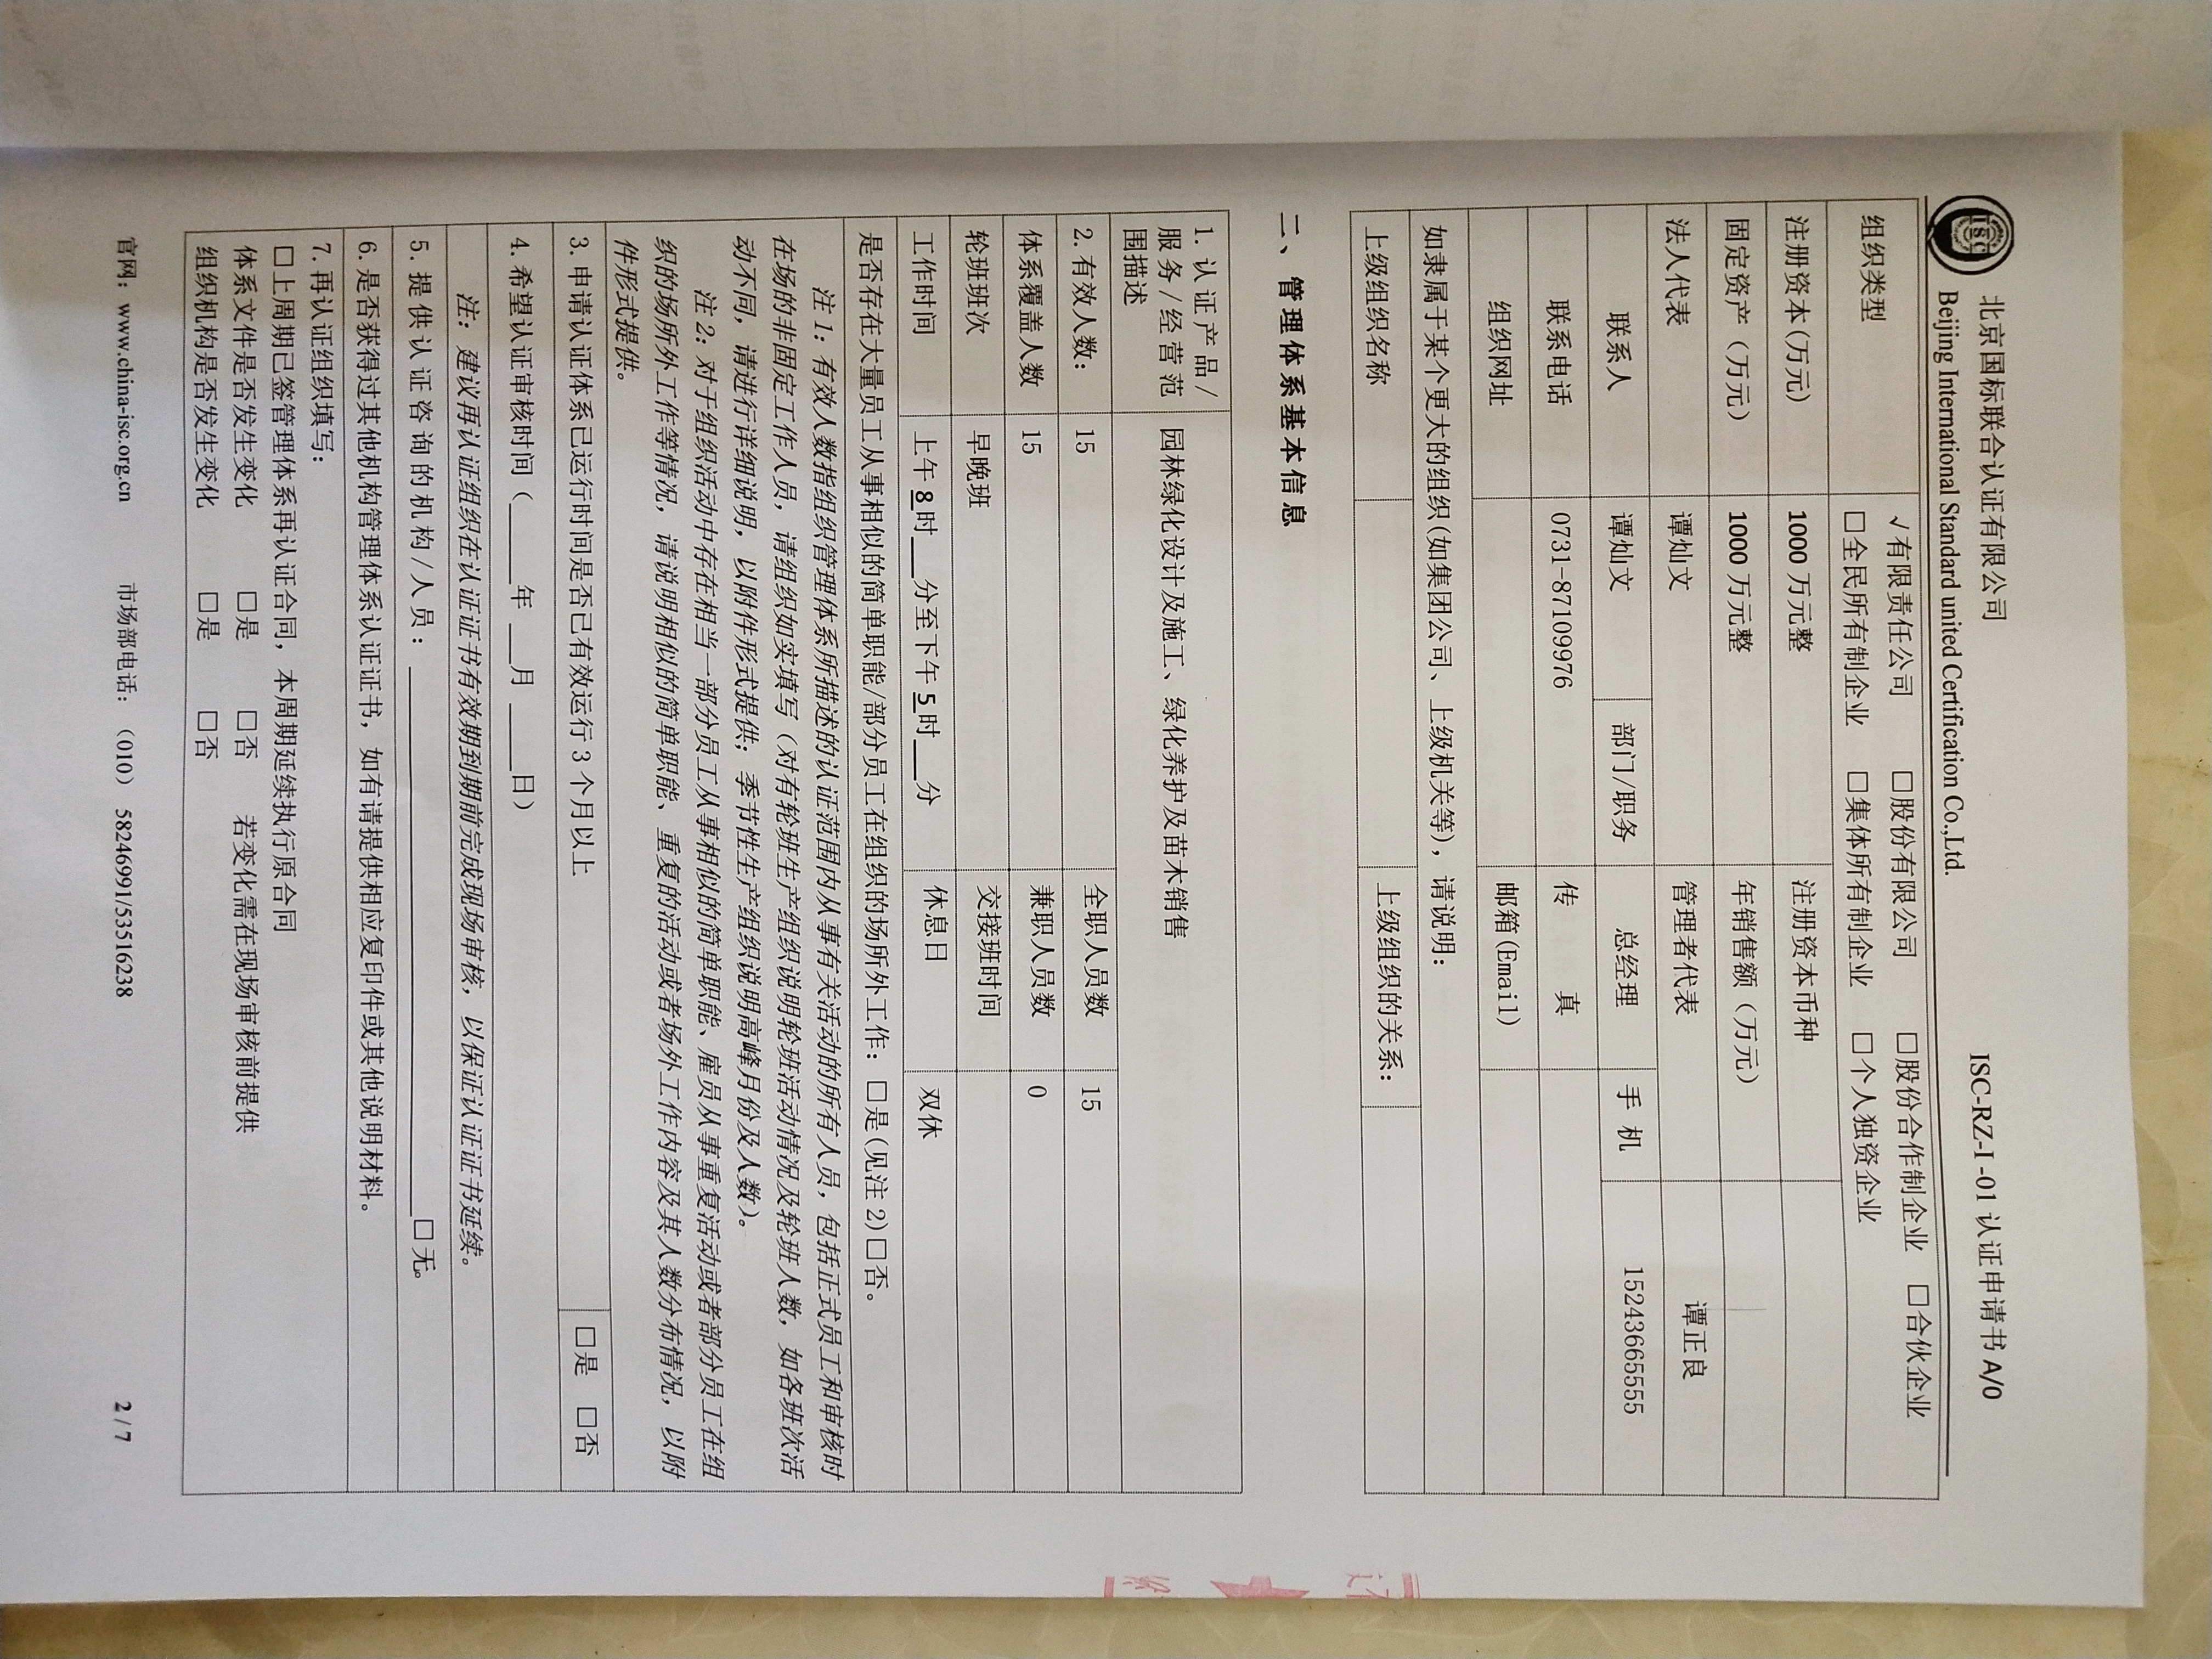 ISC
北京国标联合认证有限公司 ISC-RZ-I-01 认证申请书 A/0
Beijing International Standard united Certification Co.,Ltd.
组织类型 √有限责任公司 □股份有限公司 □股份合作制企业 □合伙企业
□全民所有制企业 □集体所有制企业 □个人独资企业
注册资本(万元) 1000 万元整 注册资本币种
固定资产（万元） 1000 万元整 年销售额（万元）
法人代表 谭灿文 管理者代表 谭正良
联系人 谭灿文 部门/职务 总经理 手 机 15243665555
联系电话 0731-87109976 传 真
组织网址 邮箱(Email)
如隶属于某个更大的组织(如集团公司、上级机关等)，请说明：
上级组织名称 上级组织的关系：
二、管理体系基本信息
1. 认证产品/
服务/经营范
围描述
园林绿化设计及施工、绿化养护及苗木销售
2. 有效人数： 15 全职人员数 15
体系覆盖人数 15 兼职人员数 0
轮班班次 早晚班 交接班时间
工作时间 上午 8 时___分至下午 5 时___分 休息日 双休
是否存在大量员工从事相似的简单职能/部分员工在组织的场所外工作：□是(见注 2)□否。
注 1：有效人数指组织管理体系所描述的认证范围内从事有关活动的所有人员，包括正式员工和审核时
在场的非固定工作人员，请组织如实填写（对有轮班生产组织说明轮班活动情况及轮班人数，如各班次活
动不同，请进行详细说明，以附件形式提供；季节性生产组织说明高峰月份及人数）。
注 2：对于组织活动中存在相当一部分员工从事相似的简单职能、雇员从事重复活动或者部分员工在组
织的场所外工作等情况，请说明相似的简单职能、重复的活动或者场外工作内容及其人数分布情况，以附
件形式提供。
3. 申请认证体系已运行时间是否已有效运行 3 个月以上 □是 □否
4. 希望认证审核时间（____年___月____日）
注：建议再认证组织在认证证书有效期到期前完成现场审核，以保证认证证书延续。
5. 提供认证咨询的机构/人员：________________________________□无。
6. 是否获得过其他机构管理体系认证证书，如有请提供相应复印件或其他说明材料。
7. 再认证组织填写：
□上周期已签管理体系再认证合同，本周期延续执行原合同
体系文件是否发生变化 □是 □否 若变化需在现场审核前提供
组织机构是否发生变化 □是 □否
官网：www.china-isc.org.cn 市场部电话：（010）58246991/53516238 2 / 7